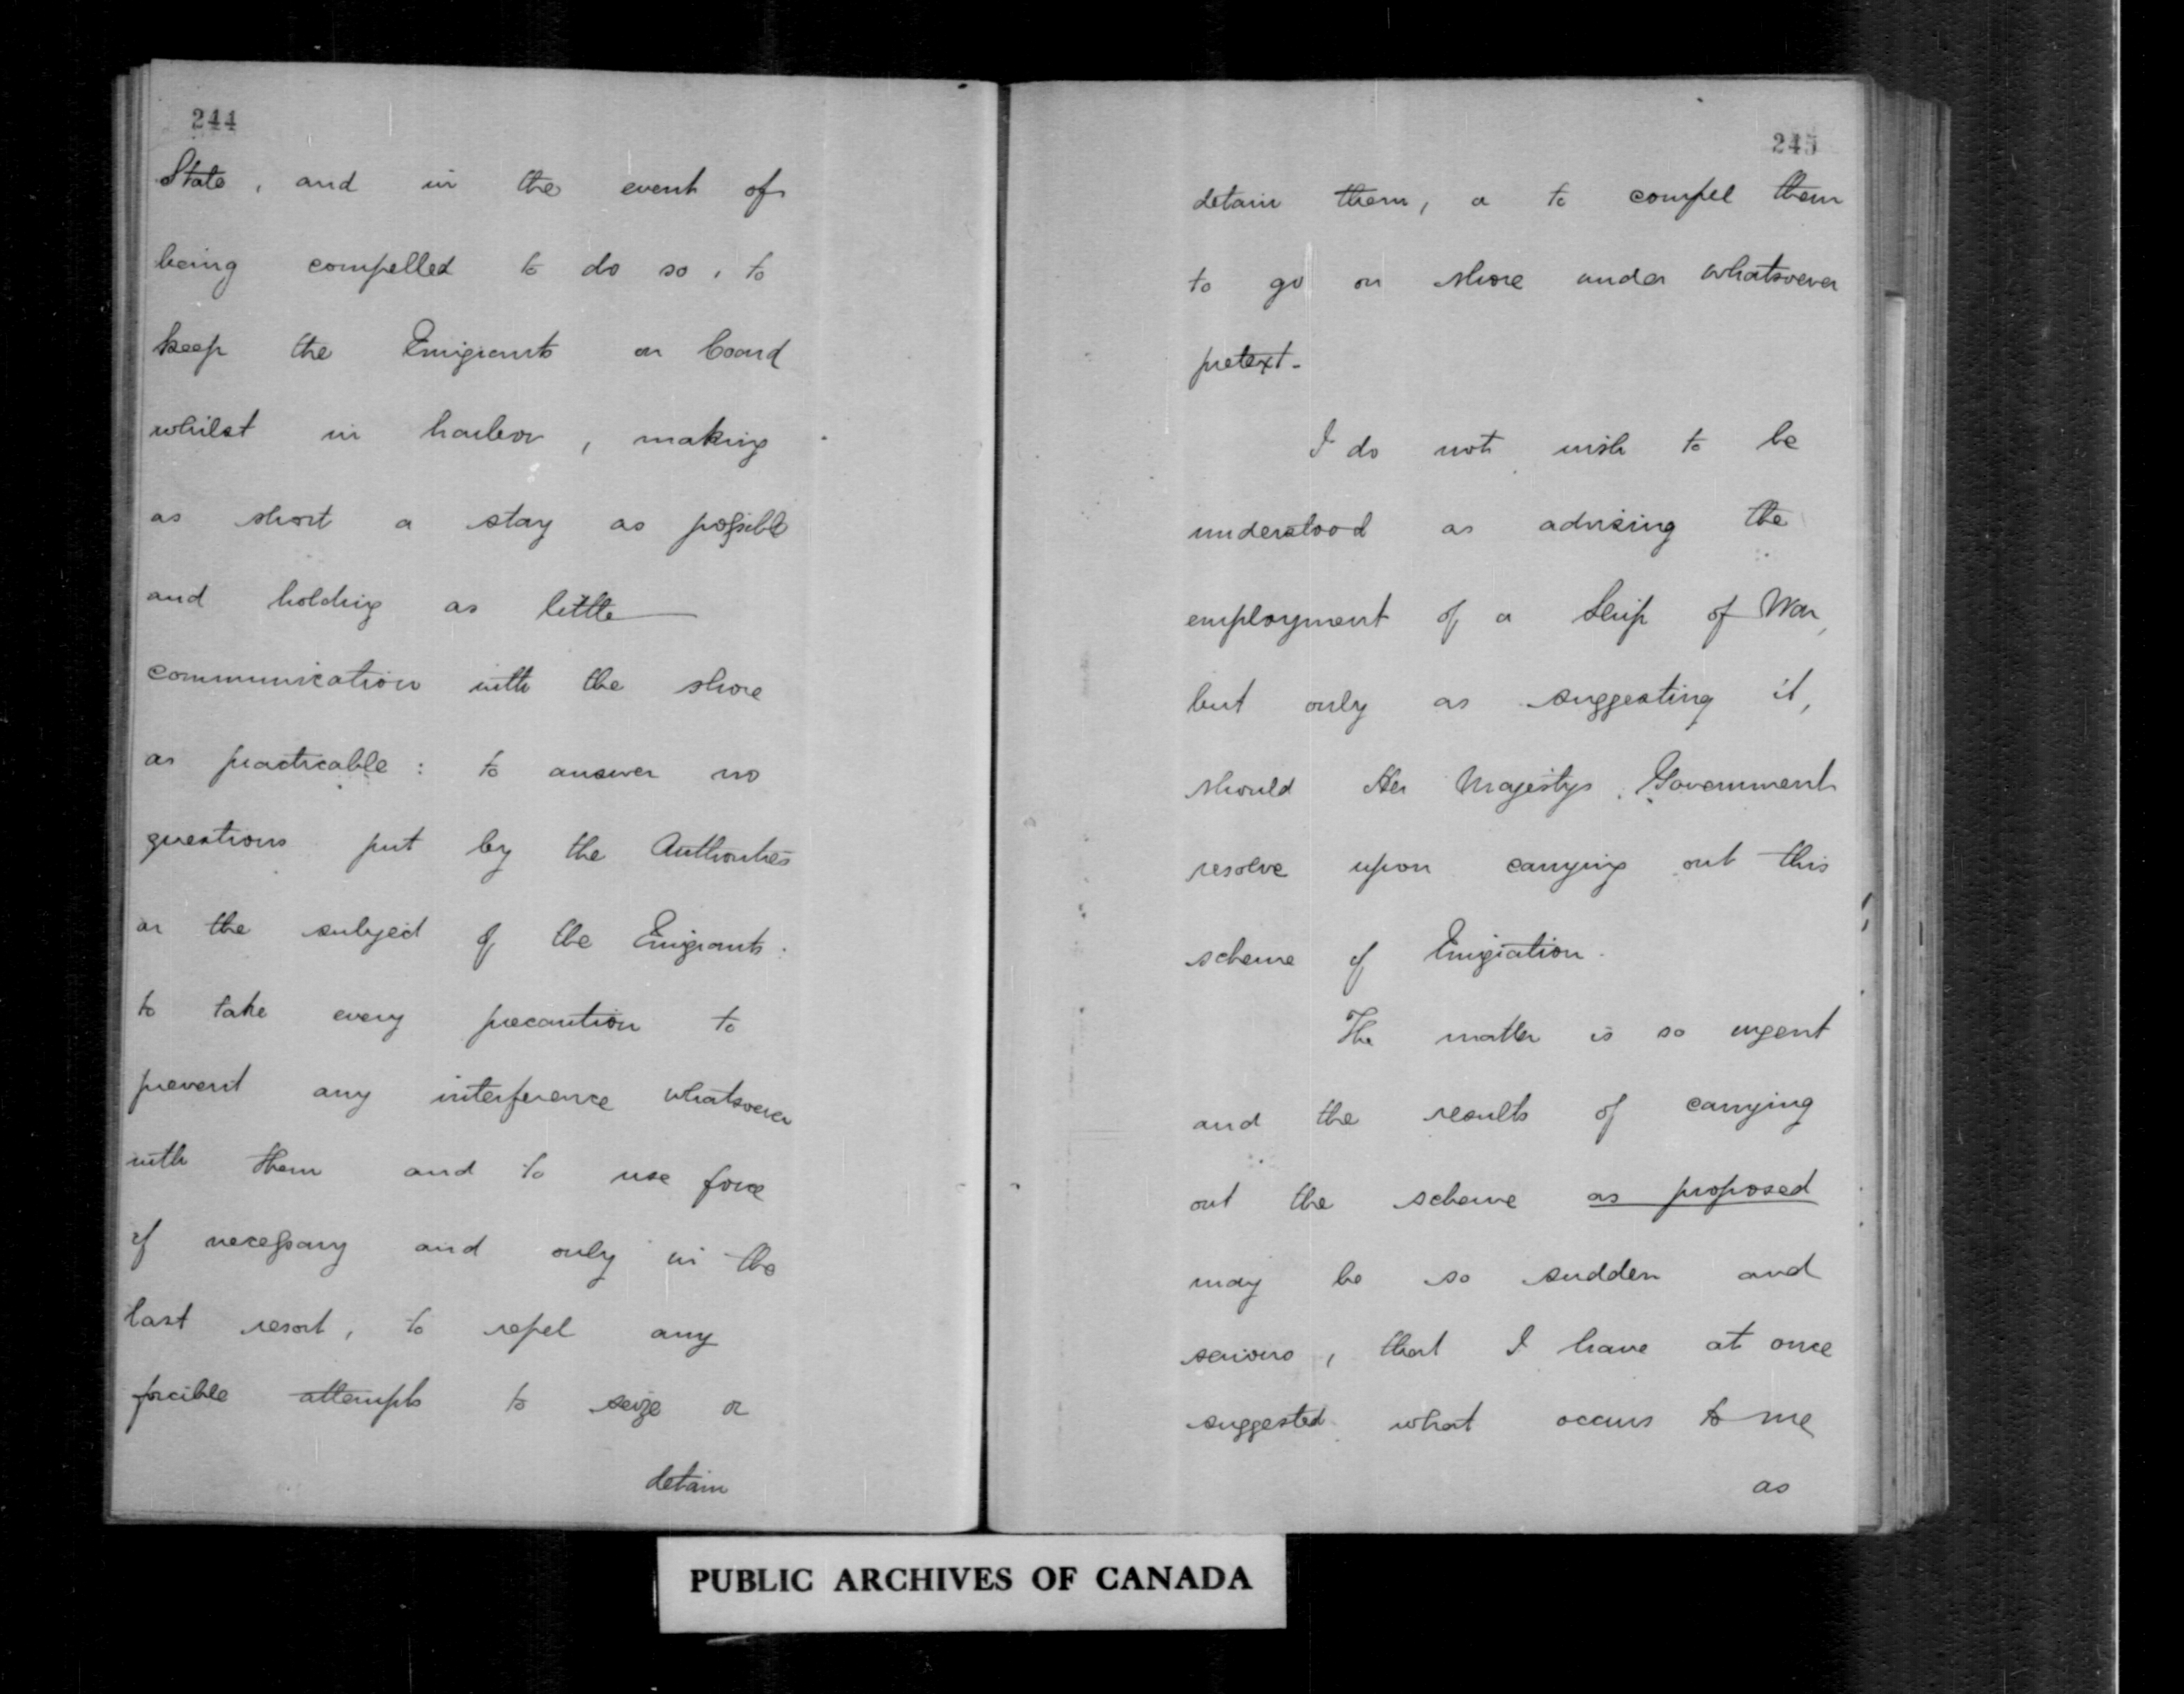 244
State, and in the event of
being compelled to do so, to
keep the Emigrants on board
whilst in harbor, making
as short a stay as possible
and holding as little
communication with the shore
as practicable: to answer no
questions put by the Authorities
on the subject of the Emigrants:
to take every precaution to
prevent any interference whatsoever
with them and to use force
if necessary and only in the
last resort, to repel any
forcible attempts to seize or
detain
245
detain them, or to compel them
to go on shore under whatsoever
pretext-
I do not wish to be
understood as advising the
employment of a Ship of War,
but only as suggesting it,
should Her Majestys Government
resolve upon carrying out this
scheme of Emigration.
The matter is so urgent
and the results of carrying
out the scheme as proposed
may be so sudden and
serious, that I have at once
suggested what occurs to me
as
PUBLIC ARCHIVES OF CANADA